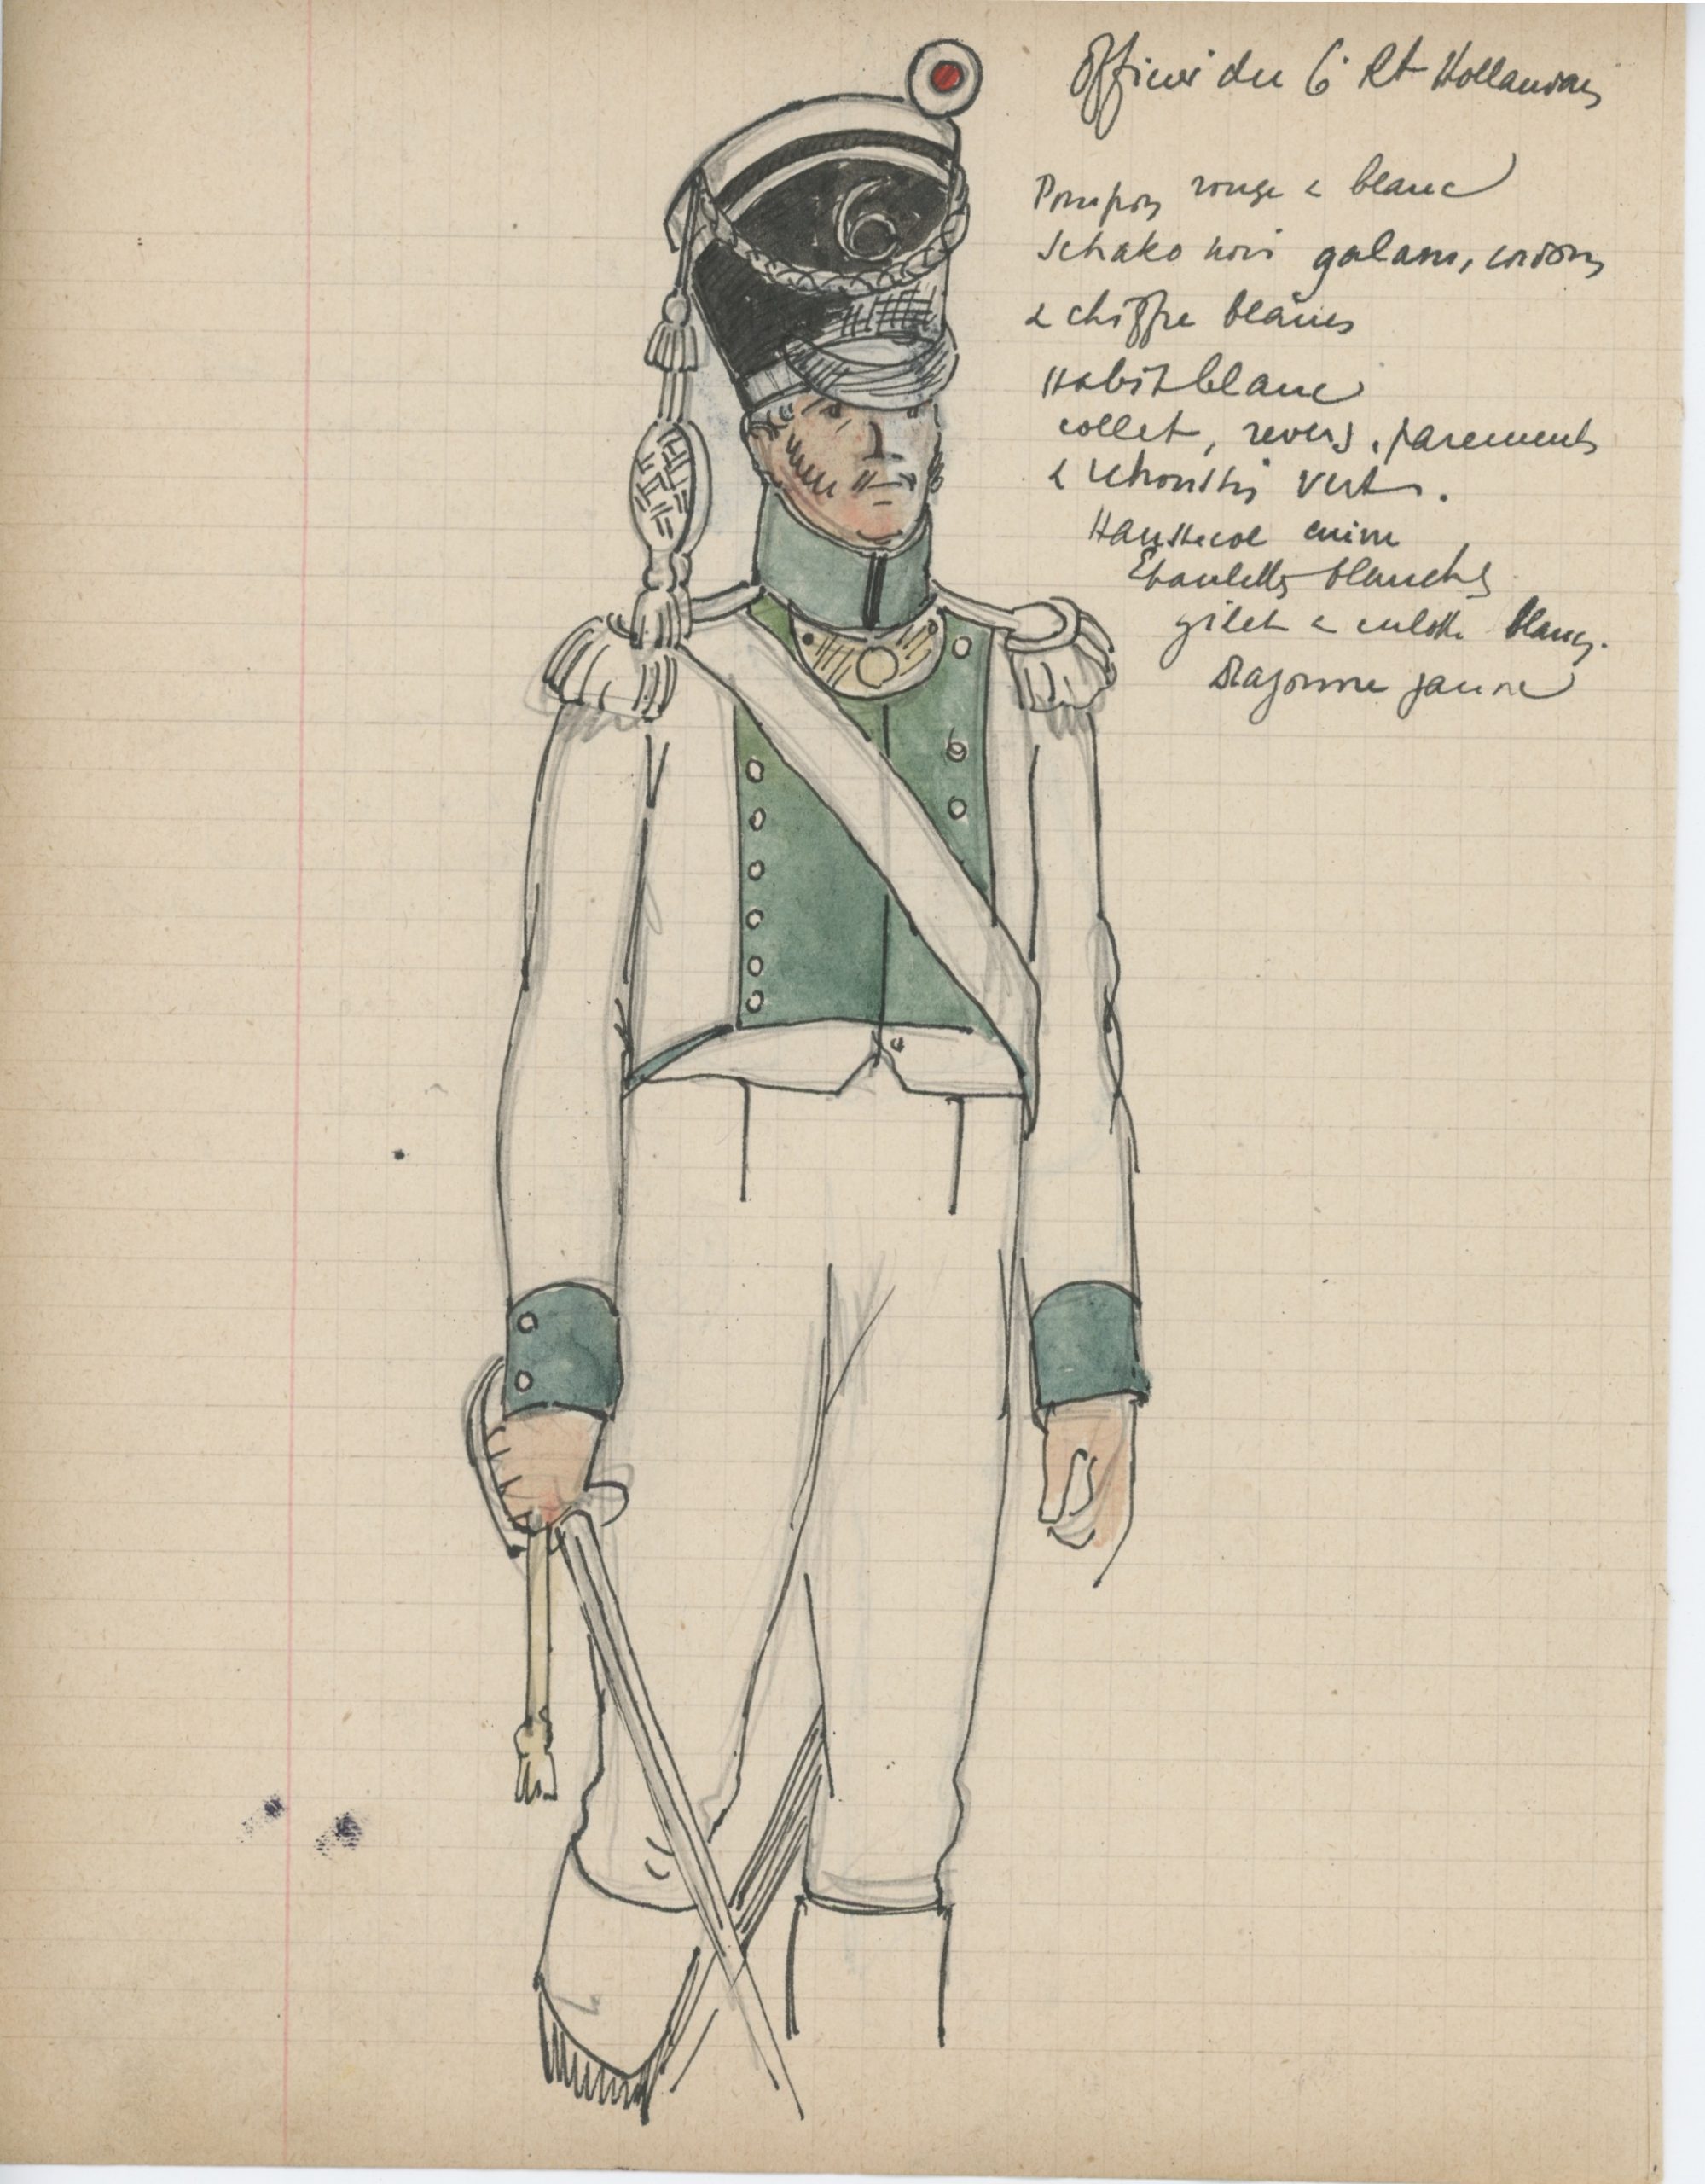 Officier du 6e Rt Hollandais
Pompon rouge & blanc
Schako noir galons, cordons
& chiffre blancs
Habit blanc
collet, revers, parements
& retroussis verts.
Haussecol cuivre
Epaulettes blanches
gilet & culotte blancs.
Dragonne jaune
6